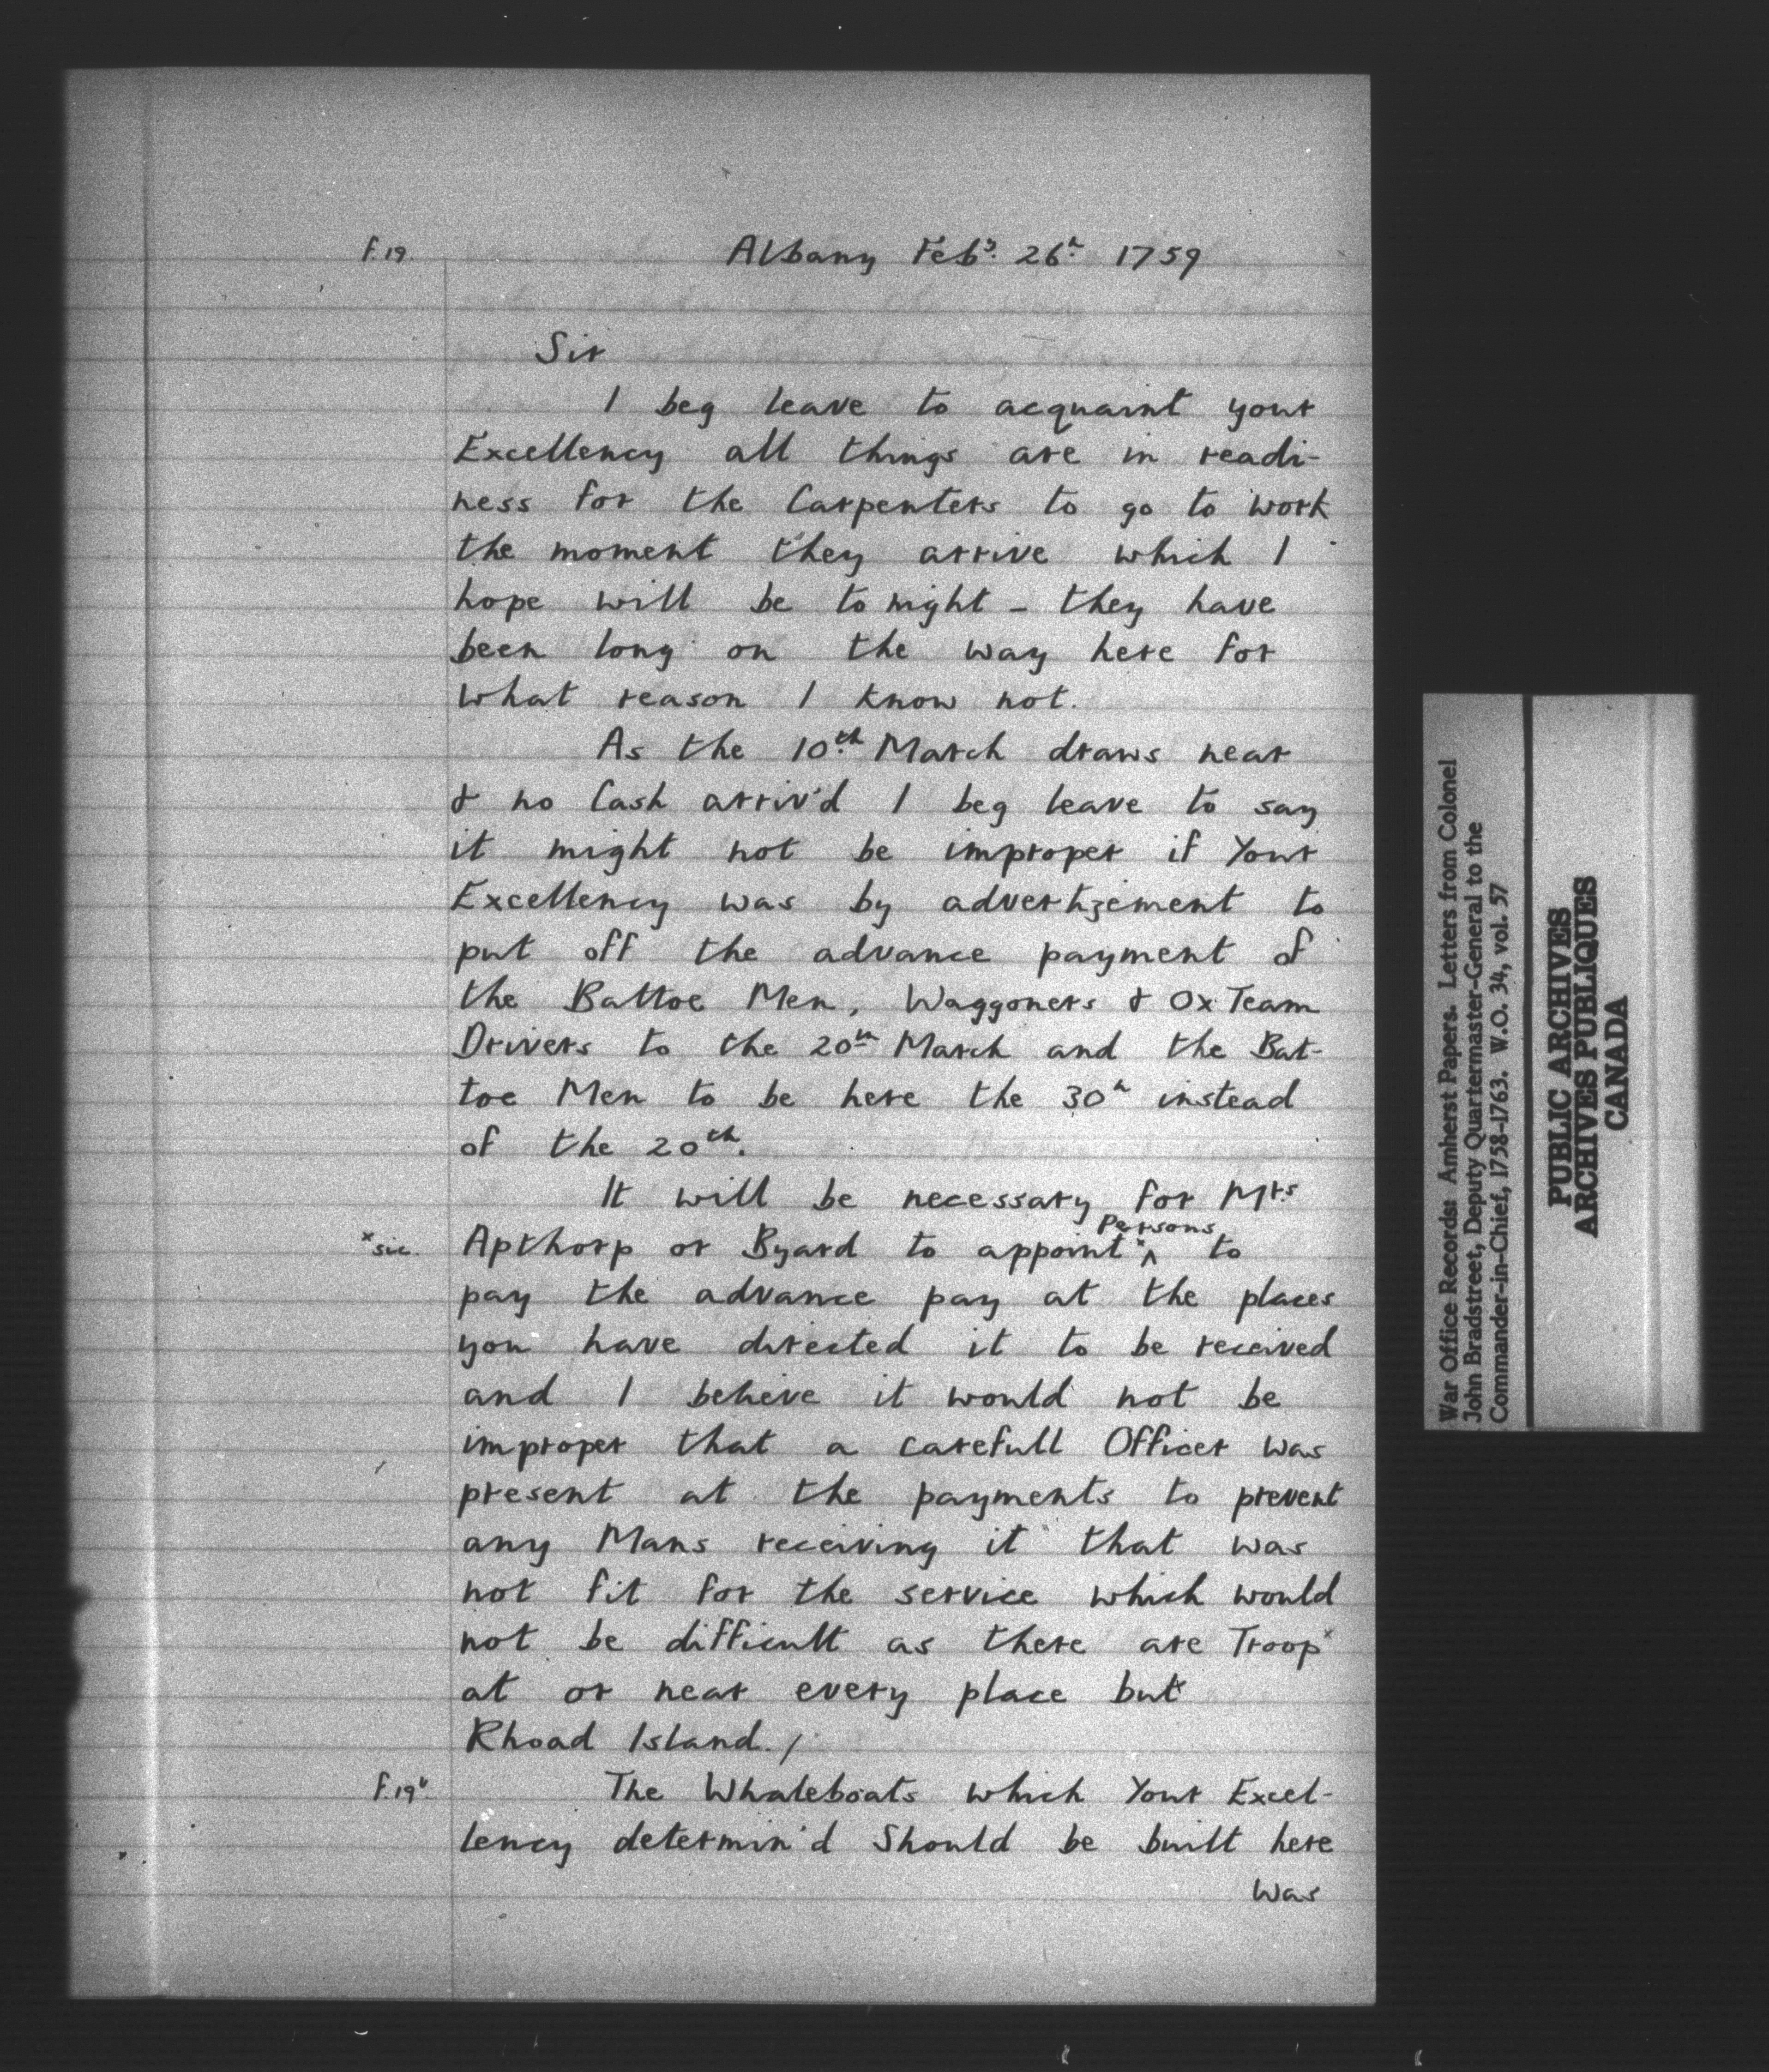 f.19.
Albany Feby. 26h. 1759
Sir
I beg leave to acquaint your
Excellency all things are in readi-
ness for the Carpenters to go to work
the moment they arrive which I
hope will be to night - they have
been long on the way here for
what reason I know not.
As the 10th. March draws near
& no Cash arriv'd I beg leave to say
it might not be improper if Your
Excellency was by advertizement to
put off the advance payment of
the Battoe Men, Waggoners & Ox Team
Drivers to the 20th March and the Bat-
toe Men to be here the 30h instead
of the 20th.
It will be necessary for Mrs
*sic. Apthorp or Byard to appoint * ^ Persons to
pay the advance pay at the places
you have directed it to be received
and I believe it would not be
improper that a carefull Officer was
present at the payments to prevent
any Mans receiving it that was
not fit for the service which would
not be difficult as there are Troops
at or near every place but
Rhoad Island. /
f.19v. The Whaleboats which Your Excel-
lency determin'd Should be built here
was
War Office Records: Amherst Papers. Letters from Colonel
John Bradstreet, Deputy Quartermaster-General to the
Commander-in-Chief, 1758-1763. W.O. 34, vol. 57
PUBLIC ARCHIVES
ARCHIVES PUBLIQUES
CANADA